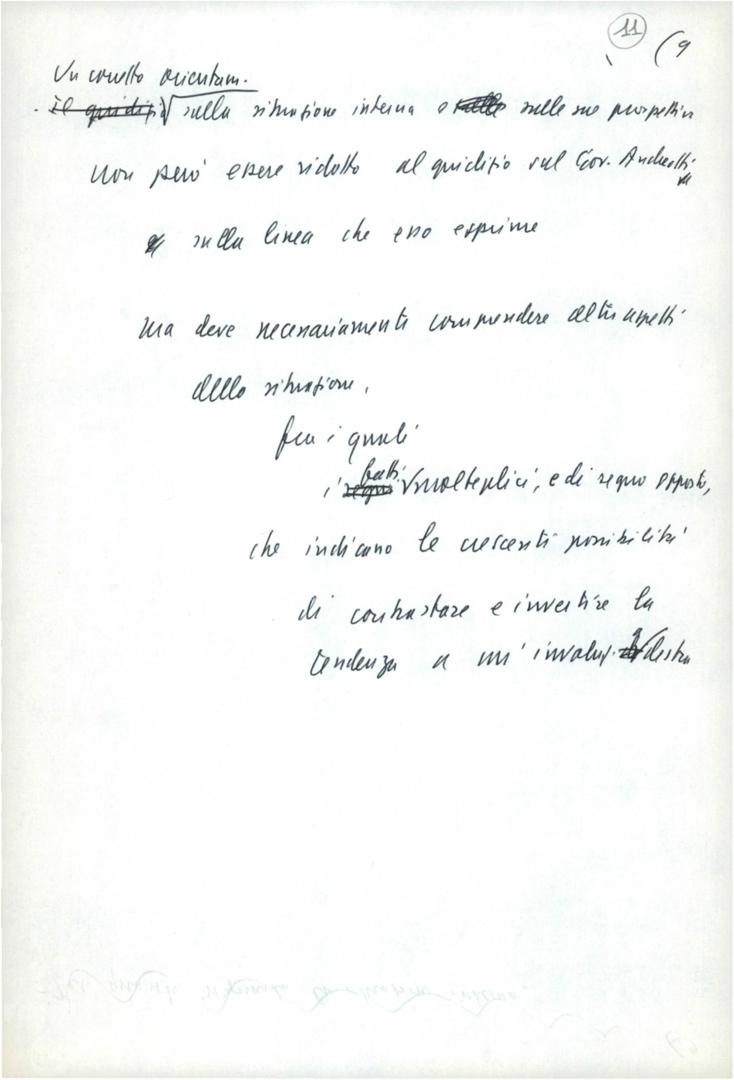 11 (9
Un corretto orientam.
. il giudizio sulla situazione interna e sulle sulle sue prospettive
non però essere ridotto al giudizio sul Gov. Andreotti
sulla linea che esso esprime
ma deve necessariamente comprendere altri aspetti
della situazione,
fra i quali
fatti
i segni molteplici, e di segno opposto,
che indicano le crescenti possibilità
di contrastare e invertire la
tendenza a un'involuz. a destra